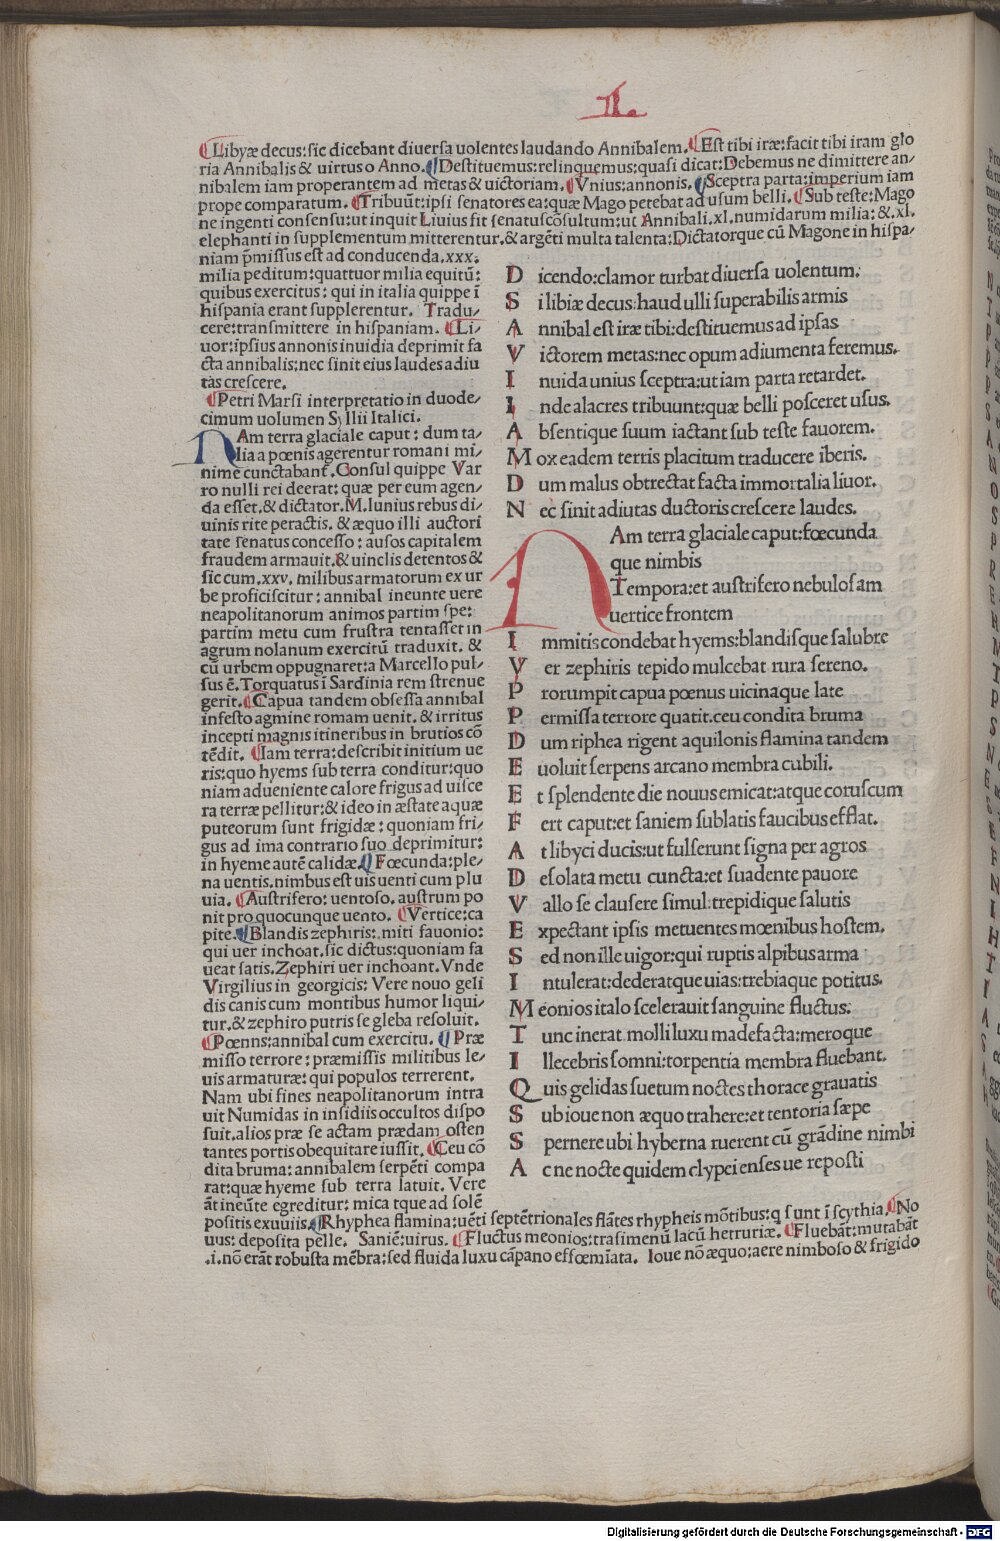 II.
Libyæ decus:sic dicebant diuersa uolentes laudando Annibalem. Est tibi iræ:facit tibi iram glo
ria Annibalis & uirtus o Anno. Destituemus:relinquemus:quasi dicat:Debemus ne dimittere an/
nibalem iam properantem ad metas & uictoriam. Vnius:annonis. Sceptra parta:imperium iam
prope comparatum. Tribuūt:ipsi senatores ea:quæ Mago petebat ad usum belli. Sub teste:Mago
ne ingenti consensu:ut inquit Liuius fit senatuscōsultum:ut Annibali.xl.numidarum milia:&.xl.
elephanti in supplementum mitterentur.& argēti multa talenta:Dictatorque cū Magone in hispa/
niam p̄missus est ad conducenda.xxx.
milia peditum:quattuor milia equitū:
quibus exercitus: qui in italia quippe ī
hispania erant supplerentur. Tradu/
cere:transmittere in hispaniam. Li/
uor:ipsius annonis inuidia deprimit fa
cta annibalis:nec sinit eius laudes adiu
tas crescere.
Petri Marsi interpretatio in duode/
cimum uolumen Syllii Italici.
NAm terra glaciale caput: dum ta/
lia a pœnis agerentur romani mi/
nime cunctabant. Consul quippe Var
ro nulli rei deerat: quæ per eum agen/
da esset.& dictator. M. Iunius rebus di/
uinis rite peractis. & æquo illi auctori
tate senatus concesso: ausos capitalem
fraudem armauit.& uinclis detentos &
sic cum.xxv. milibus armatorum ex ur
be proficiscitur: annibal ineunte uere
neapolitanorum animos partim spe:
partim metu cum frustra tentasset in
agrum nolanum exercitū traduxit. &
cū urbem oppugnaret:a Marcello pul/
sus ē. Torquatus ī Sardinia rem strenue
gerit. Capua tandem obsessa annibal
infesto agmine romam uenit. & irritus
incepti magnis itineribus in brutios cō
tēdit. Iam terra:describit initium ue
ris:quo hyems sub terra conditur:quo
niam adueniente calore frigus ad uisce
ra terræ pellitur:& ideo in æstate aquæ
puteorum sunt frigidæ: quoniam fri/
gus ad ima contrario suo deprimitur:
in hyeme autē calidæ. Fœcunda:ple/
na uentis.nimbus est uis uenti cum plu
uia. Austrifero: uentoso. austrum po
nit pro quocunque uento. Vertice:ca
pite. Blandis zephiris: miti fauonio:
qui uer inchoat.sic dictus:quoniam fa
ueat satis. Zephiri uer inchoant. Vnde
Virgilius in georgicis: Vere nouo geli
dis canis cum montibus humor liqui/
tur.& zephiro putris se gleba resoluit.
Pœnns:annibal cum exercitu. Præ
misso terrore: præmissis militibus le/
uis armaturæ: qui populos terrerent.
Nam ubi fines neapolitanorum intra
uit Numidas in insidiis occultos dispo
suit.alios præ se actam prædam osten
tantes portis obequitare iussit. Ceu cō
dita bruma: annibalem serpēti compa
rat:quæ hyeme sub terra latuit. Vere
āt ineūte egreditur: mica tque ad solē
positis exuuiis. Rhyphea flamina:uēti septētrionales flātes rhypheis mōtibus:q sunt ī scythia. No
uus: deposita pelle. Saniē:uirus. Fluctus meonios:trasimenū lacū hetruriæ. Fluebāt:mutabāt
.i.nō erāt robusta mēbra:sed fluida luxu cāpano effœmīata. Ioue nō æquo:aere nimboso & frigido
D icendo:clamor turbat diuersa uolentum.
S i libiæ decus:haud ulli superabilis armis
A nnibal est iræ tibi:destituemus ad ipsas
V ictorem metas:nec opum adiumenta feremus.
I nuida unius sceptra:ut iam parta retardet.
I nde alacres tribuunt:quæ belli posceret usus.
A bsentique suum iactant sub teste fauorem.
M ox eadem terris placitum traducere iberis.
D um malus obtrectat facta immortalia liuor.
N ec sinit adiutas ductoris crescere laudes.
NAm terra glaciale caput:fœcunda
que nimbis
Tempora:et austrifero nebulosam
uertice frontem
I mmitis condebat hyems:blandisque salubre
V er zephiris tepido mulcebat rura sereno.
P rorumpit capua pœnus uicinaque late
P ermissa terrore quatit.ceu condita bruma
D um riphea rigent aquilonis flamina tandem
E uoluit serpens arcano membra cubili.
E t splendente die nouus emicat:atque coruscum
F ert caput:et saniem sublatis faucibus efflat.
A t libyci ducis:ut fulserunt signa per agros
D esolata metu cuncta:et suadente pauore
V allo se clausere simul:trepidique salutis
E xpectant ipsis metuentes mœnibus hostem.
S ed non ille uigor:qui ruptis alpibus arma
I ntulerat:dederatque uias:trebiaque potitus.
M eonios italo scelerauit sanguine fluctus.
T unc inerat.molli luxu madefacta:meroque
I llecebris somni:torpentia membra fluebant.
Q uis gelidas suetum noctes thorace grauatis
S ub ioue non æquo trahere:et tentoria sæpe
S pernere ubi hyberna ruerent cū grādine nimbi
A c ne nocte quidem clypei enses ue reposti
Digitalisierung gefördert durch die Deutsche Forschungsgemeinschaft - DFG